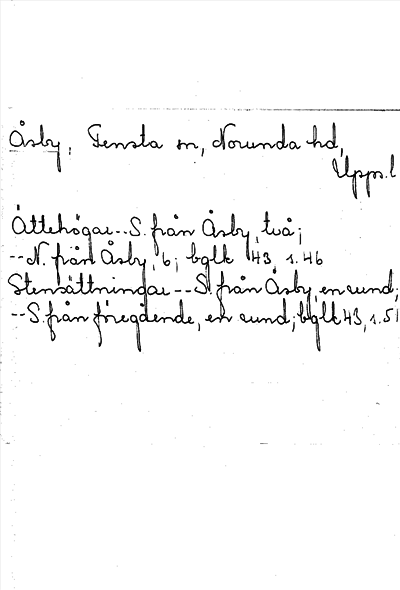 Åsby, Tensta sn, Norunda hd,
Upps.l
Ättehögar--S. från Åsby, två;
--N. från Åsby, 6; bglk 43, s.46
Stensättningar--S. från Åsby, en rund;
--S. från föregående, en rund; bglk 43, s.51